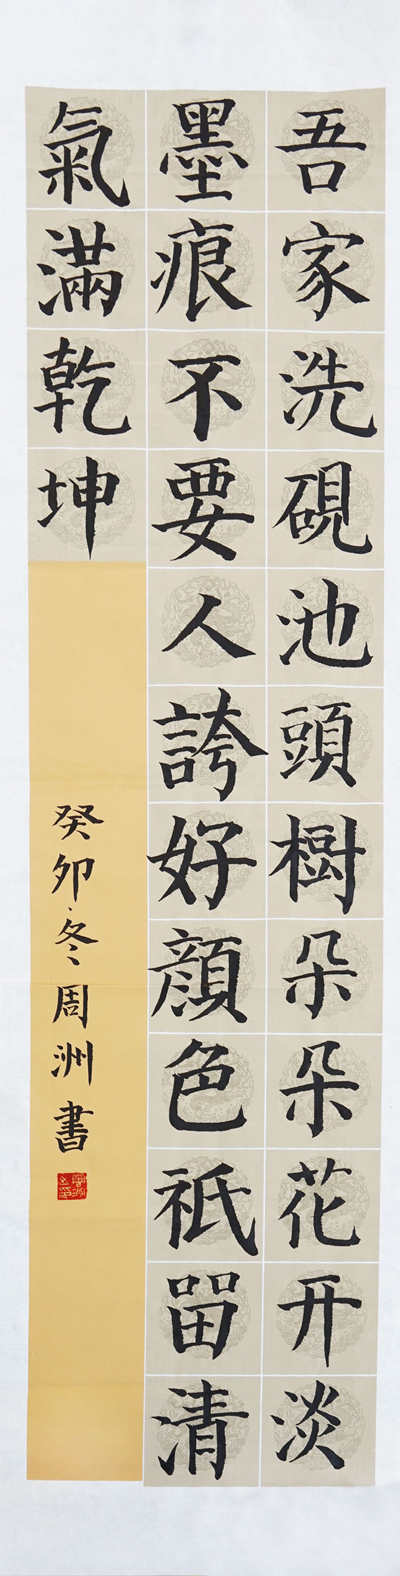 吾家洗硯池頭樹朵朵花开淡
墨痕不要人誇好顔色祇畱清
氣滿乾坤
癸卯冬周洲書